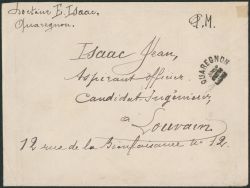 Docteur E. Isaac,
Quaregnon.
P.M.
Isaac Jean,
Aspirant officier.
Candidat Ingénieur,
QUAREGNON
à Louvain
12 rue de la Bienfaisance n° 12.